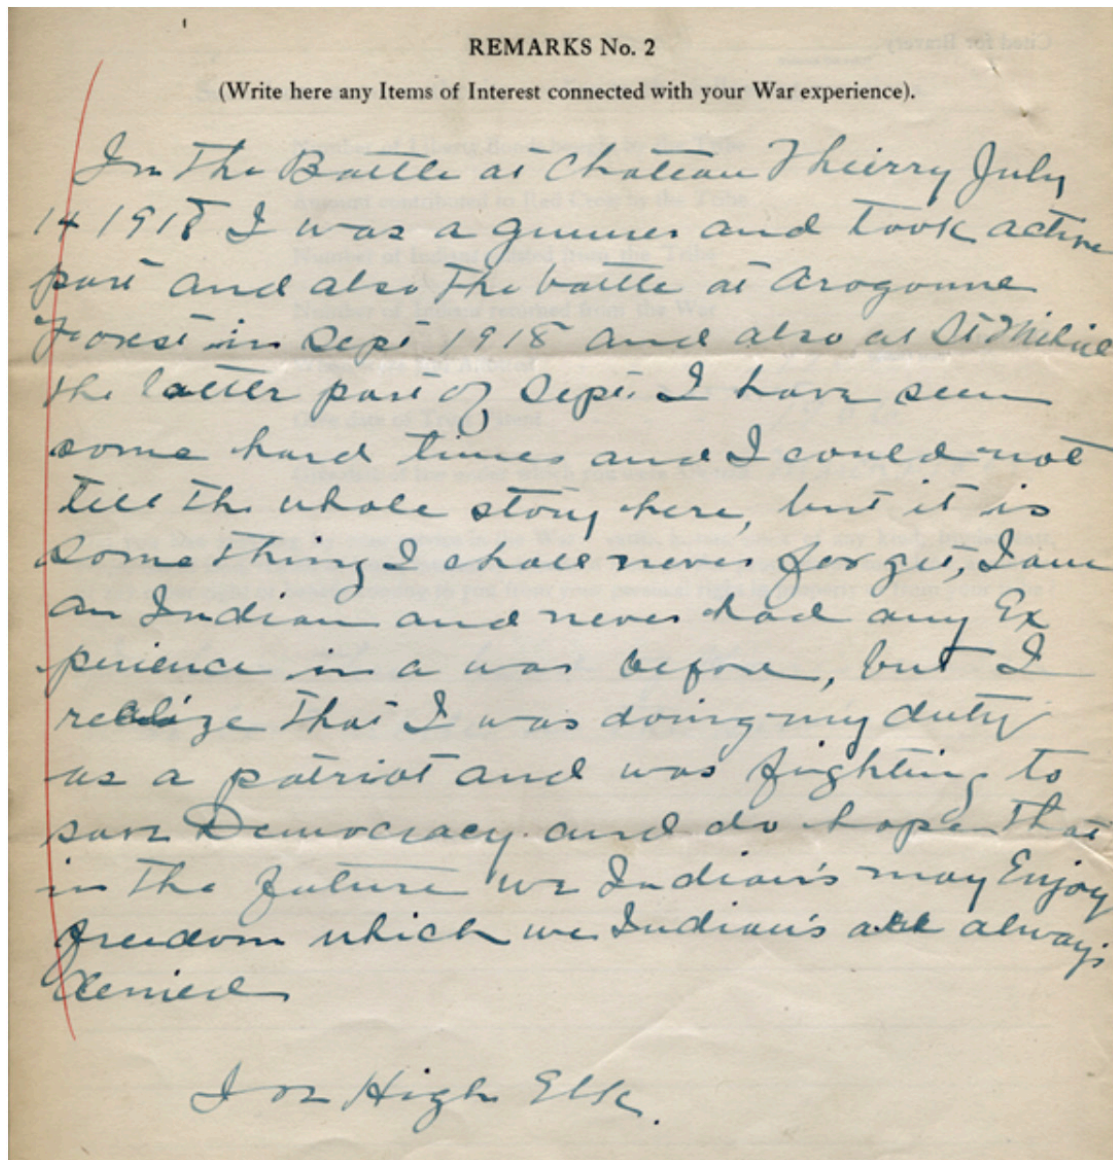 REMARKS No. 2
(Write here any Items of Interest connected with your War experience).
In The Battle at Chateau Thierry July
14 1918 I was a gunner and took active
part and also The battle at Arogonne
Forest in Sept 1918 and also at St Mihiel
the latter part of Sept. I have seen
some hard times and I could not
tell the whole story here, but it is
Some Thing I shall never forget, I am
an Indian and never had any Ex
perience in a war before, but I
realize that I was doing my duty
as a patriot and was fighting to
save Democracy and do hope that
in the future we Indian's may Enjoy
freedom which we Indian's are always
denied
Joe High Elk.